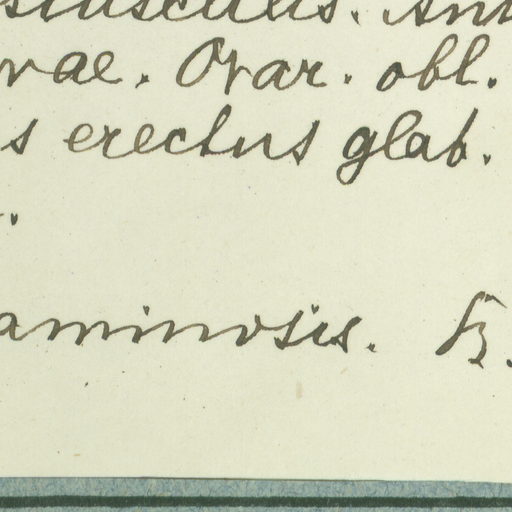 iusculis. Ant
vae. Ovar. obl.
s erectus glab.
aminosis.